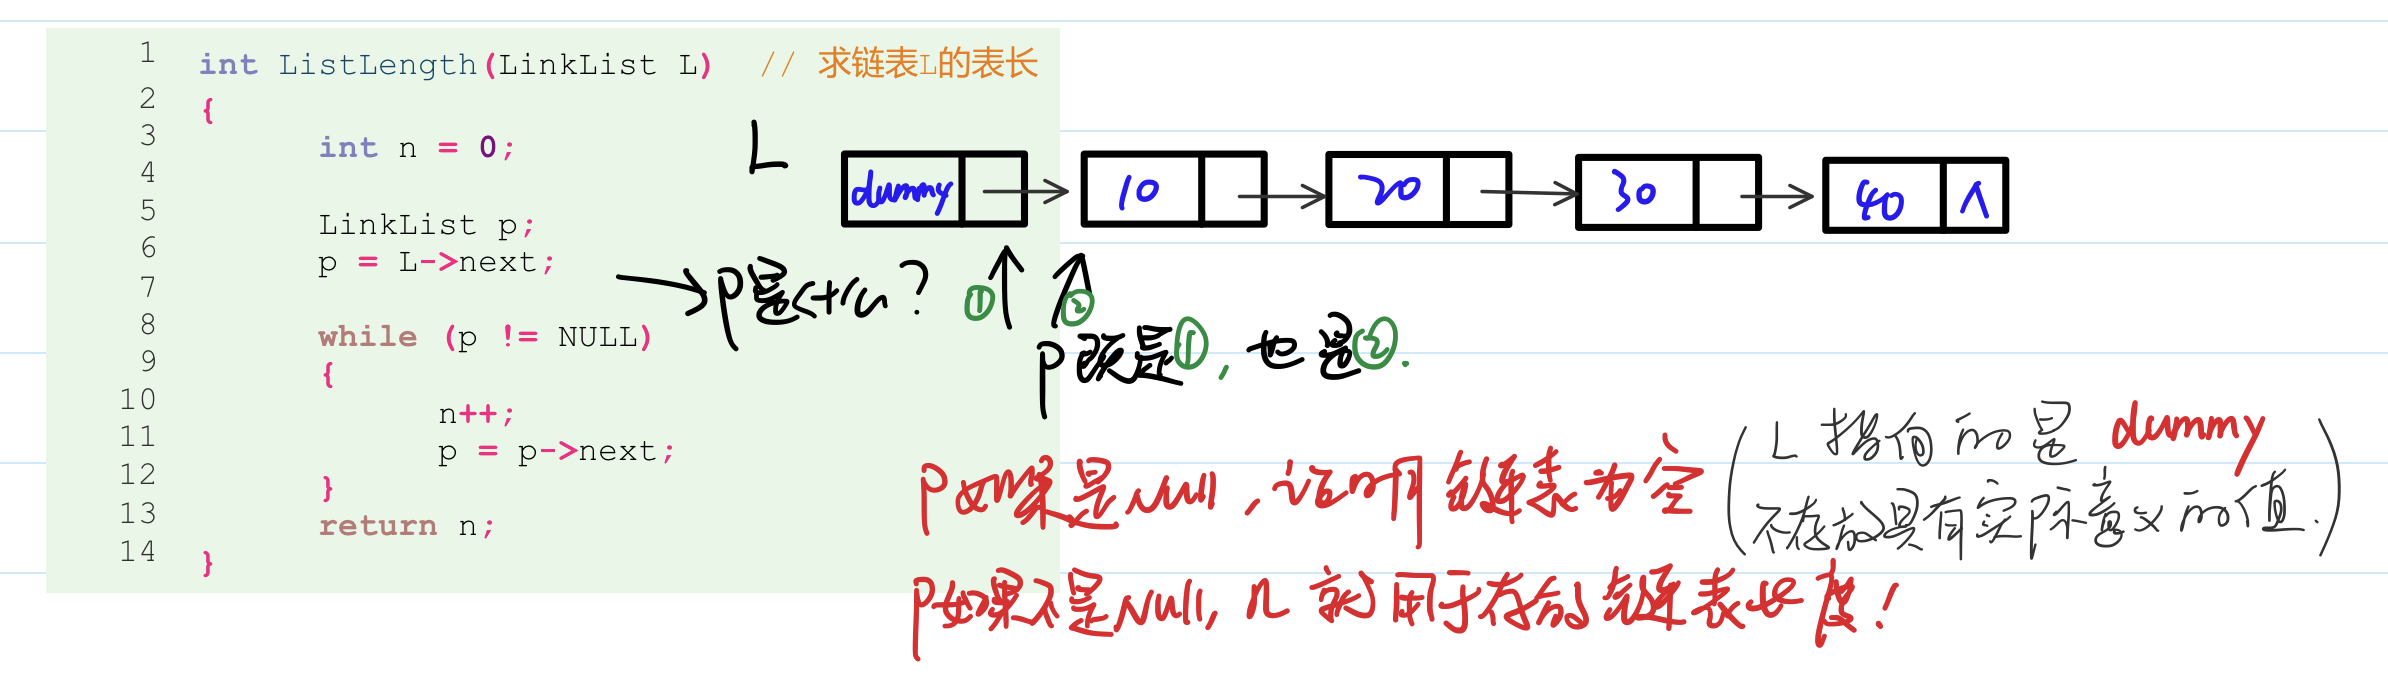 1 int ListLength(LinkList L) // 求链表L的表长
2 {
3 int n = 0;
4
5 LinkList p;
6 p = L->next;
7
8 while (p != NULL)
9 {
10 n++;
11 p = p->next;
12 }
13 return n;
14 }
L
dummy 10 20 30 40 ∧
p是什么? ① ②
p既是①, 也是②.
p如果是null, 说明链表为空
(L 指向的是 dummy
不存放具有实际意义的值.)
p如果不是null, n 就用于存放链表长度!